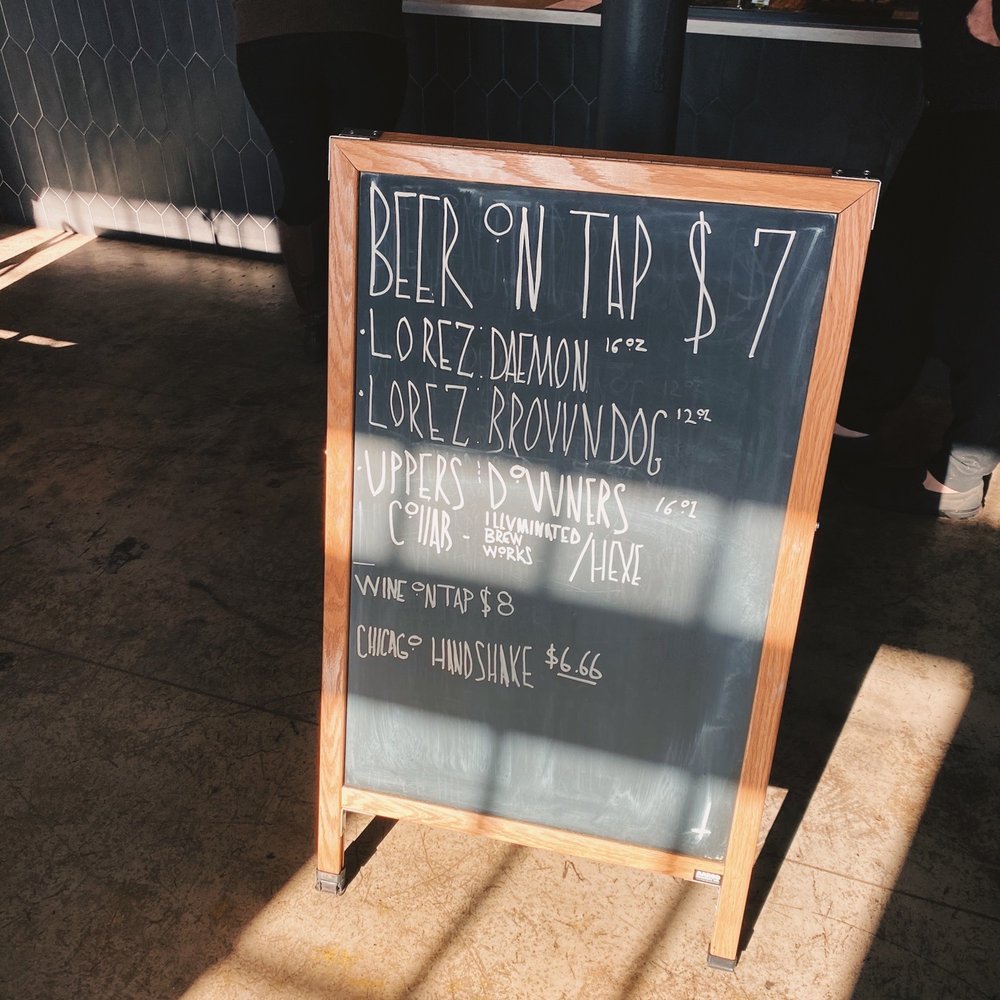 BEER ON TAP $7
·LOREZ: DAEMON 16oz
·LOREZ: BROWNDOG 12oz
·UPPERS : DOWNERS 16oz
COLLAB - ILLUMINATED BREW WORKS /HEXE
WINE ON TAP $8
CHICAGO HANDSHAKE $6.66